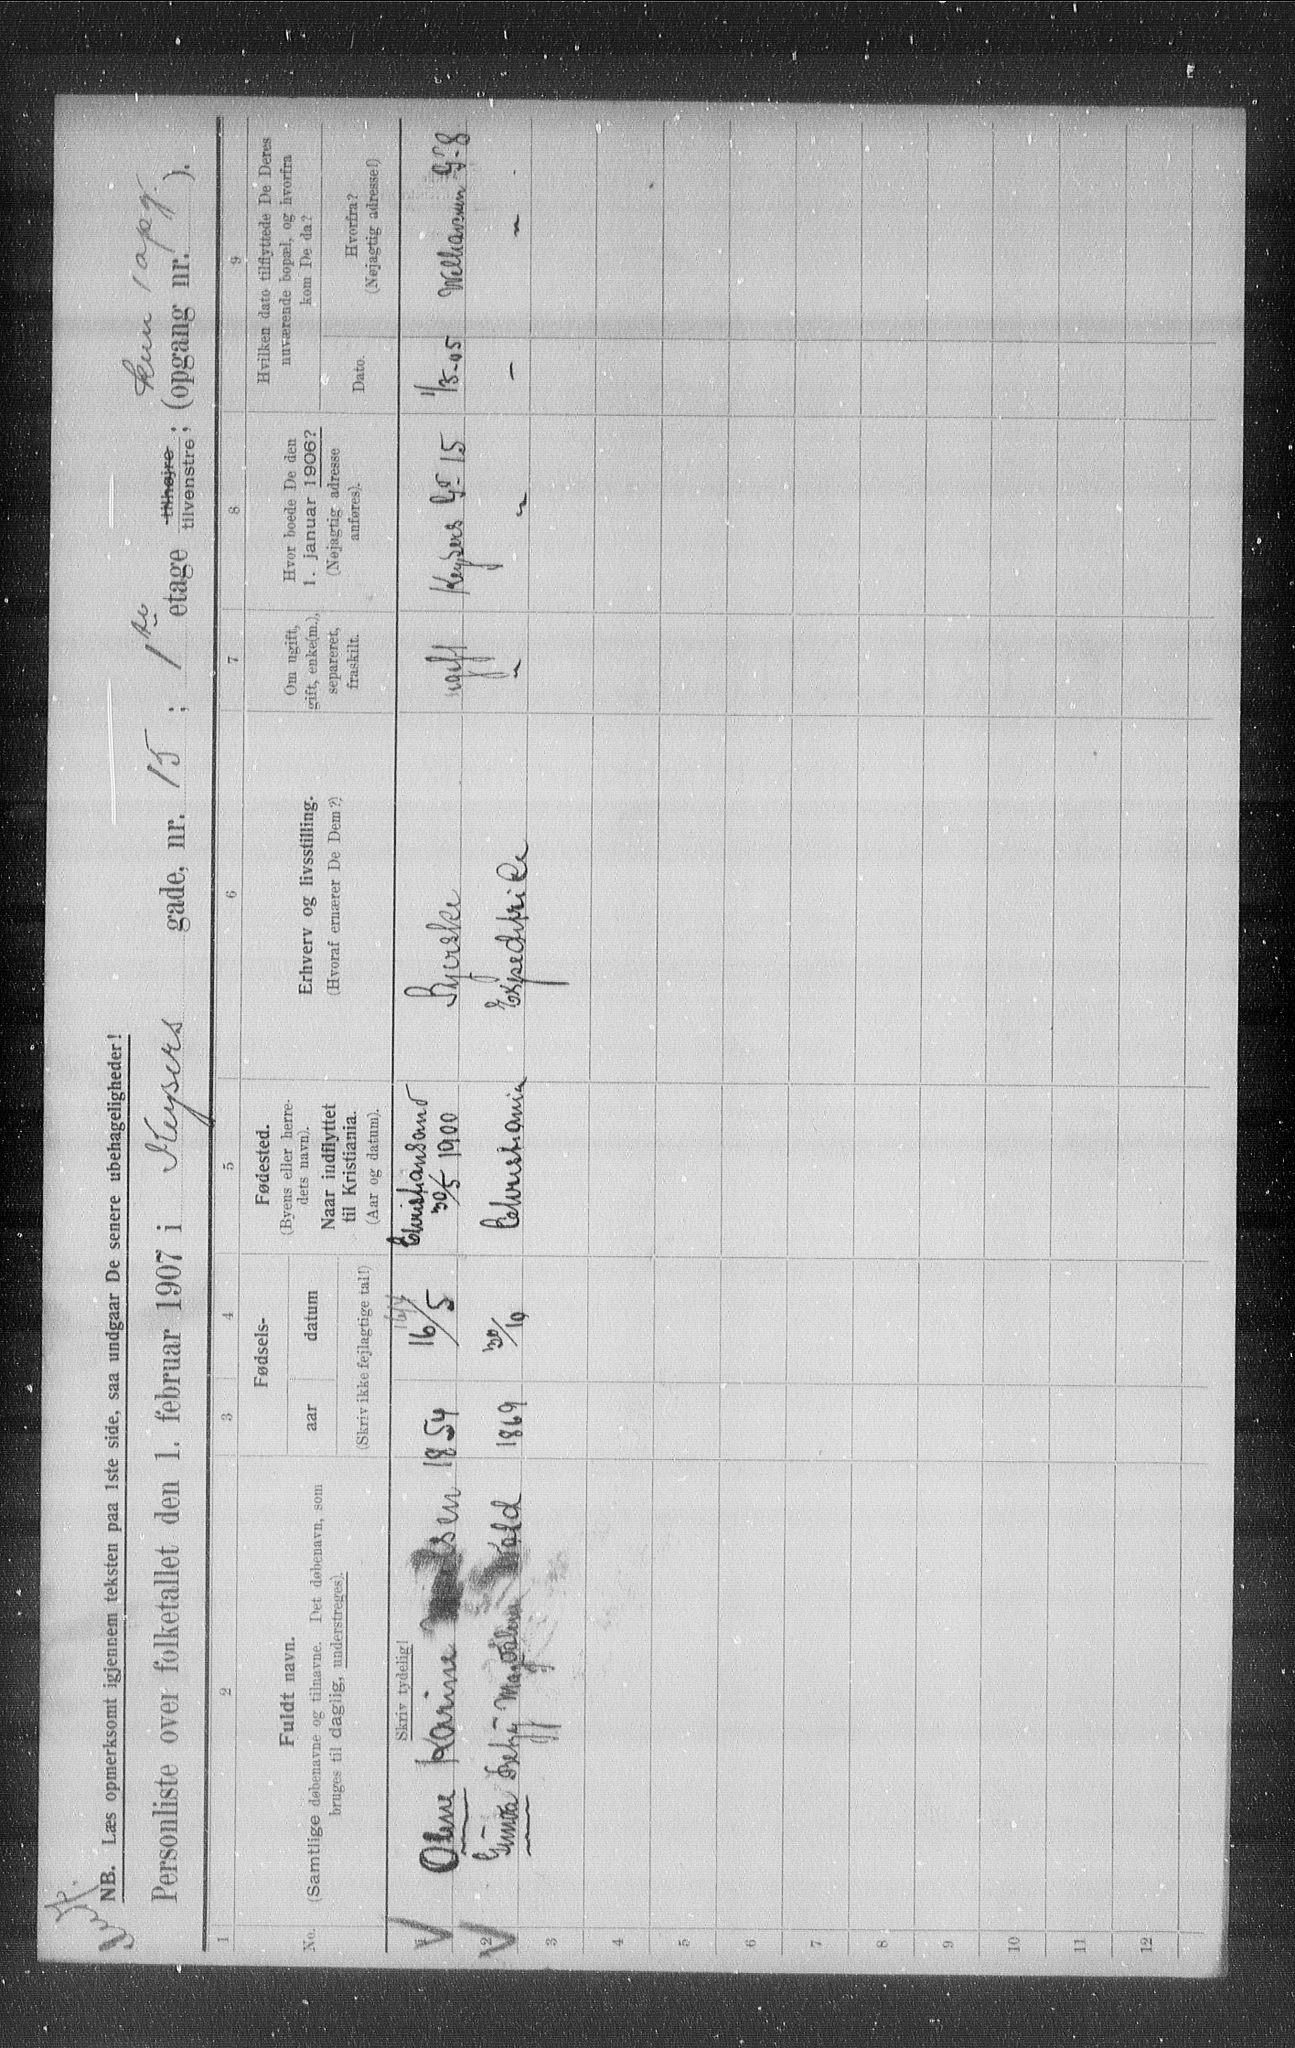 NB. Læs opmerksomt igjennem teksten paa 1ste side, saa undgaar De senere ubehageligheder!
Personliste over folketallet den 1. februar 1907 i Keysers gade, nr. 15 ; 1ste etage tilhøjre tilvenstre ; (opgang nr. kun 1 opg. ).
1 2 3 4 5 6 7 8 9
No.
Fuldt navn.
(Samtlige døbenavne og tilnavne. Det døbenavn, som
bruges til daglig, understreges).
Fødsels-
aar datum
(Skriv ikke fejlagtige tal!)
Fødested.
(Byens eller herre-
dets navn).
Naar indflyttet
til Kristiania.
(Aar og datum).
Erhverv og livsstilling.
(Hvoraf ernærer De Dem?)
Om ugift,
gift, enke(m.),
separeret,
fraskilt.
Hvor boede De den
1. januar 1906?
(Nøjagtig adresse
anføres).
Hvilken dato tilflyttede De Deres
nuværende bopæl, og hvorfra
kom De da?
Dato.
Hvorfra?
(Nøjagtig adresse!)
Skriv tydelig!
1 Olene Karine 1854 16/5 Christiansand 30/5 1900 Syerske ugift Keysers Gd 15 1/3-05 Gd 8
2 Magdalena 1869 30/10 Christiania Expeditrice " " - "
3
4
5
6
7
8
9
10
11
12